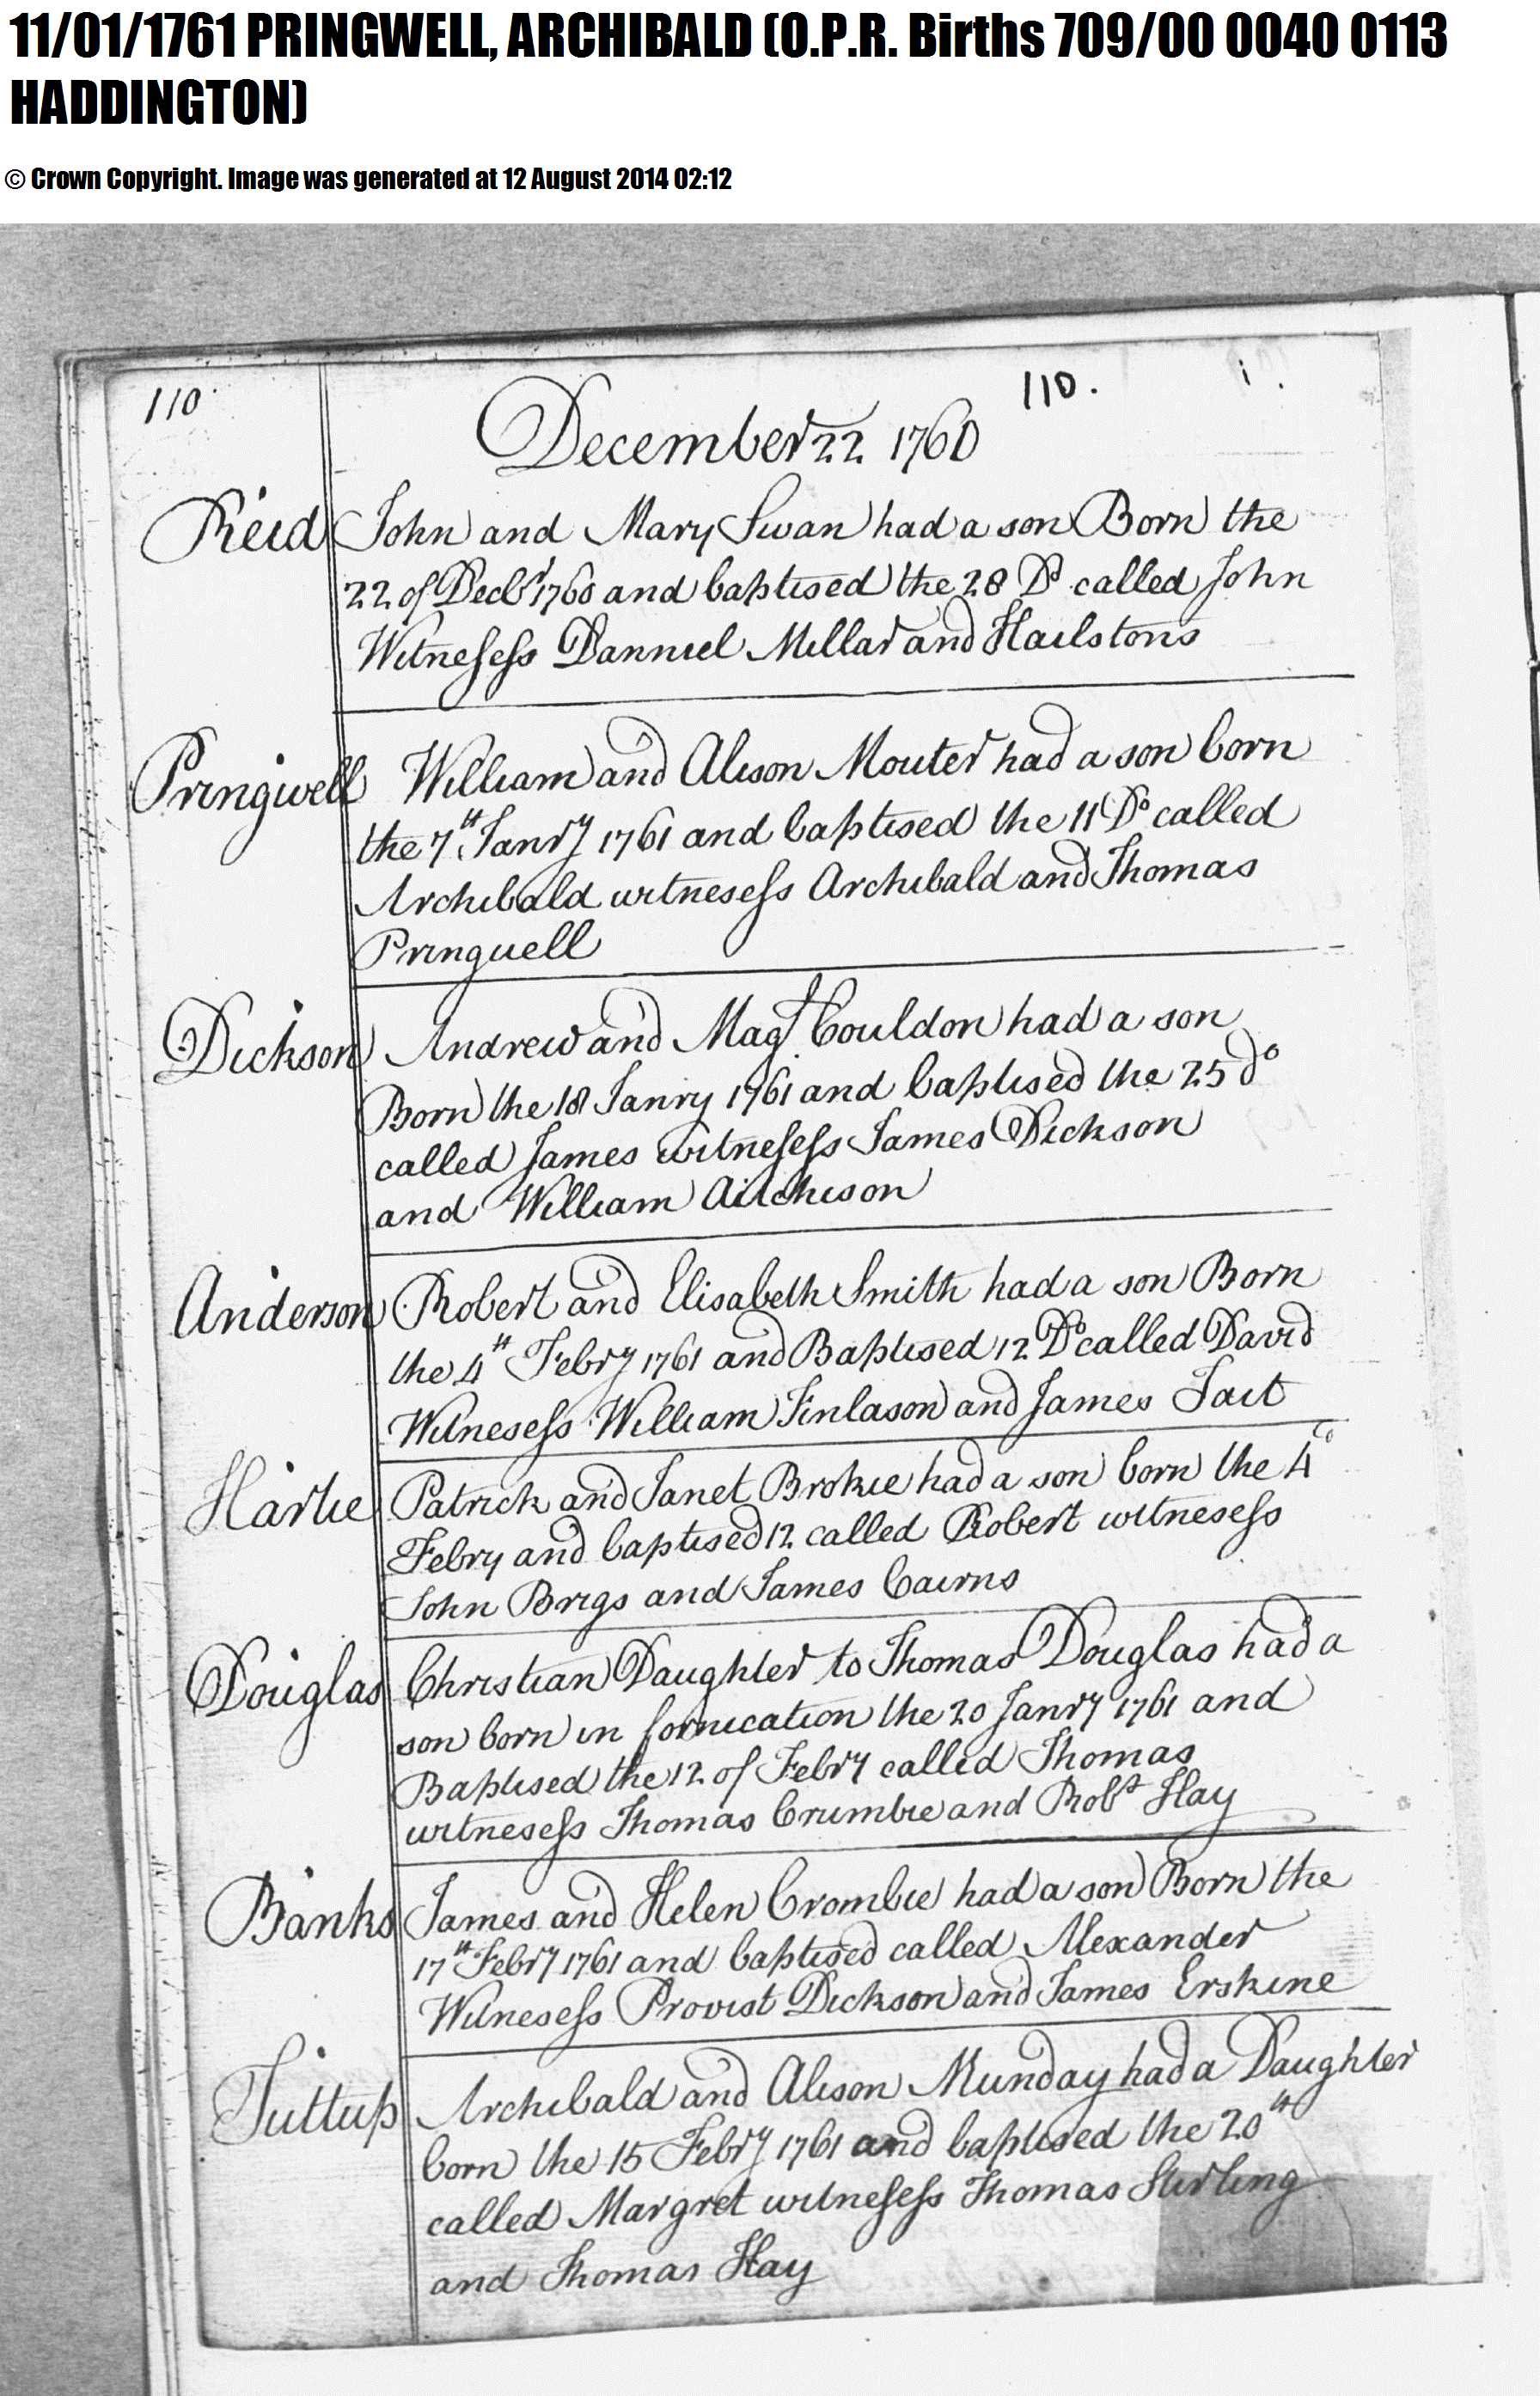 11/01/1761 PRINGWELL, ARCHIBALD (O.P.R. Births 709/00 0040 0113
HADDINGTON)
© Crown Copyright. Image was generated at 12 August 2014 02:12
110
110.
December 22 1760
Reid John and Mary Swan had a son Born the
22 of Decbr 1760 and baptised the 28 Do called John
Witnesess Danniel Millar and Hailstons
Pringwell William and Alison Mouter had a son born
the 7th Janry 1761 and baptised the 11 Do called
Archibald witnesess Archibald and Thomas
Pringuell
Dickson Andrew and Magt Couldon had a son
Born the 18 Janry 1761 and baptised the 25 do
called James witnesess James Dickson
and William Aitchison
Anderson Robert and Elisabeth Smith had a son Born
the 4th Febry 1761 and Baptised 12 Do called David
Witnesess William Finlason and James Tait
Harlie Patrick and Janet Brokie had a son born the 4
Febry and baptised 12 called Robert witnesess
John Brigs and James Cairns
Douglas Christian Daughter to Thomas Douglas had a
son born in fornication the 20 Janry 1761 and
Baptised the 12 of Febry called Thomas
witnesess Thomas Crumbie and Robt Hay
Banks James and Helen Crombie had a son Born the
17th Febry 1761 and baptised called Alexander
Witnesess Provist Dickson and James Erskine
Tuttup Archibald and Alison Munday had a Daughter
born the 15 Febry 1761 and baptised the 20th
called Margret witnesess Thomas Stirling
and Thomas Hay